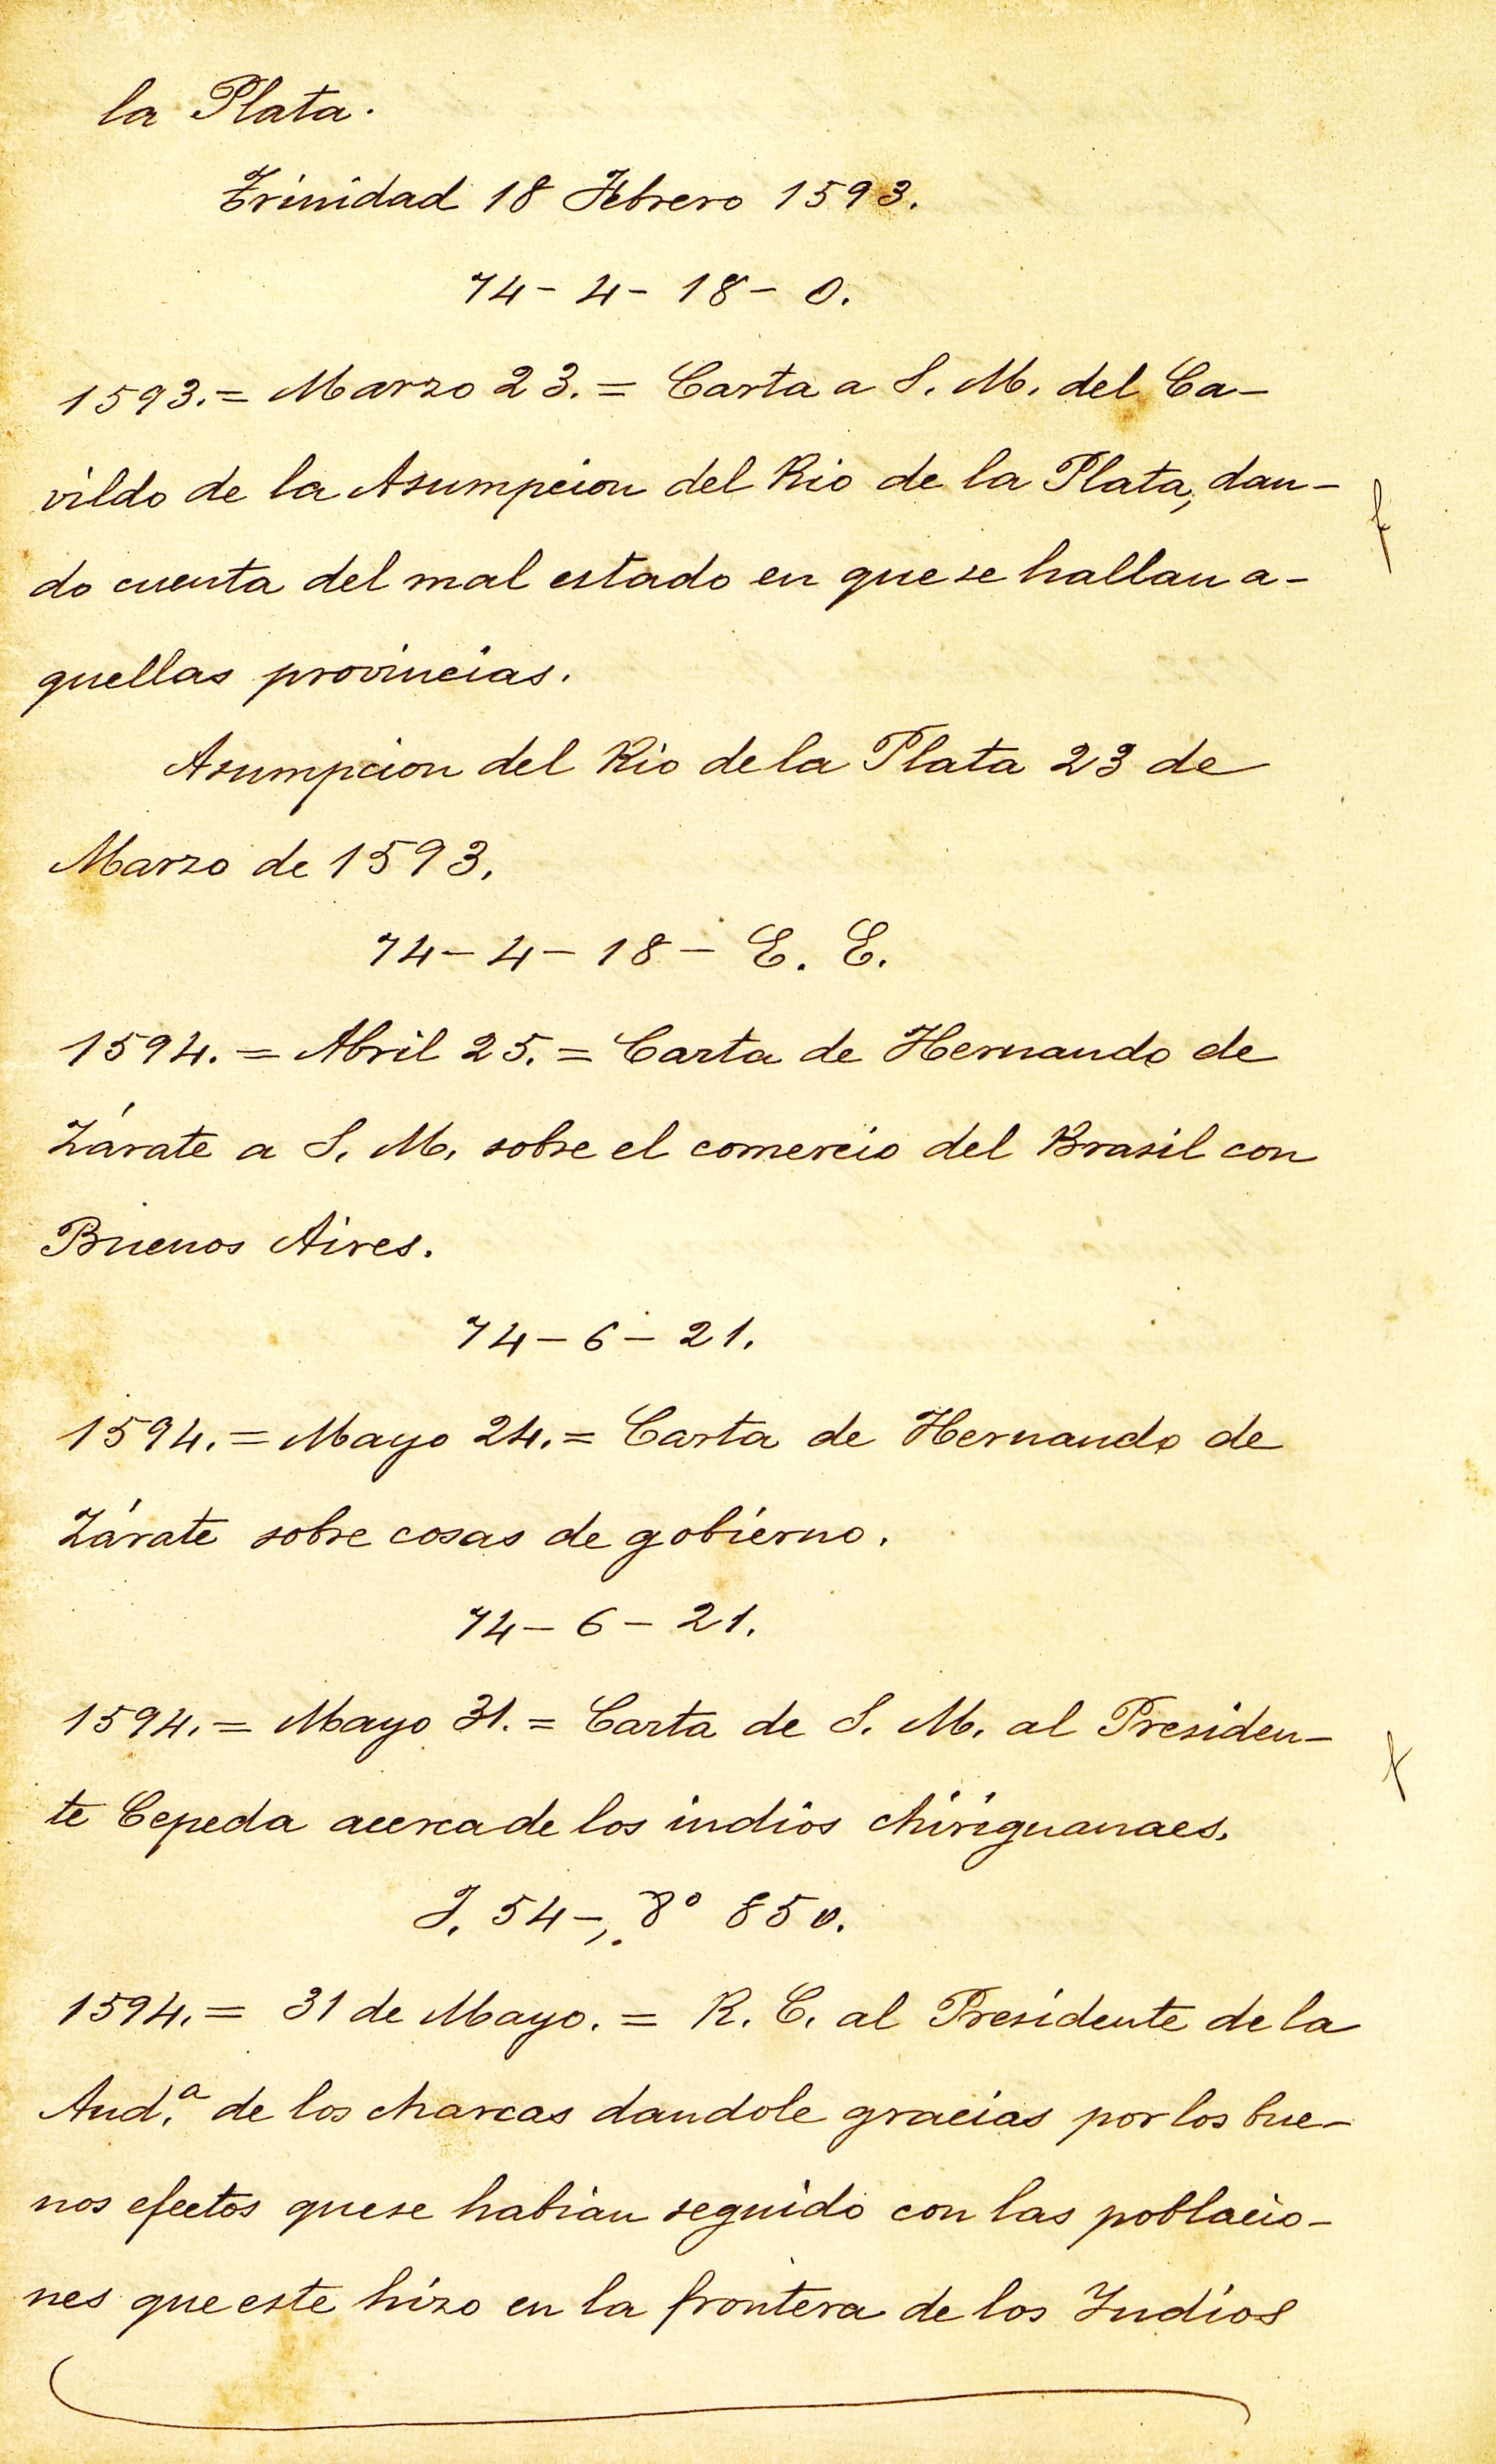 la Plata.
Trinidad 18 Febrero 1593.
74-4-18-O.
1593.= Marzo 23.= Carta a S. M. del Ca-
vildo de la Asumpcion del Rio de la Plata, dan-
do cuenta del mal estado en que se hallan a-
quellas provincias.
Asumpcion del Rio de la Plata 23 de
Marzo de 1593.
74-4-18-E. E.
1594.= Abril 25.= Carta de Hernando de
Zárate a S. M. sobre el comercio del Brasil con
Buenos Aires.
74-6-21.
1594.= Mayo 24.= Carta de Hernando de
Zárate sobre cosas de gobierno.
74-6-21.
1594.= Mayo 31.= Carta de S. M. al Presiden-
te Cepeda acerca de los indios chiriguanaes.
J. 54-, 8º 850.
1594.= 31 de Mayo.= R. C. al Presidente de la
Aud.ª de los charcas dandole gracias por los bue-
nos efectos que se habian seguido con las poblacio-
nes que este hizo en la frontera de los Indios